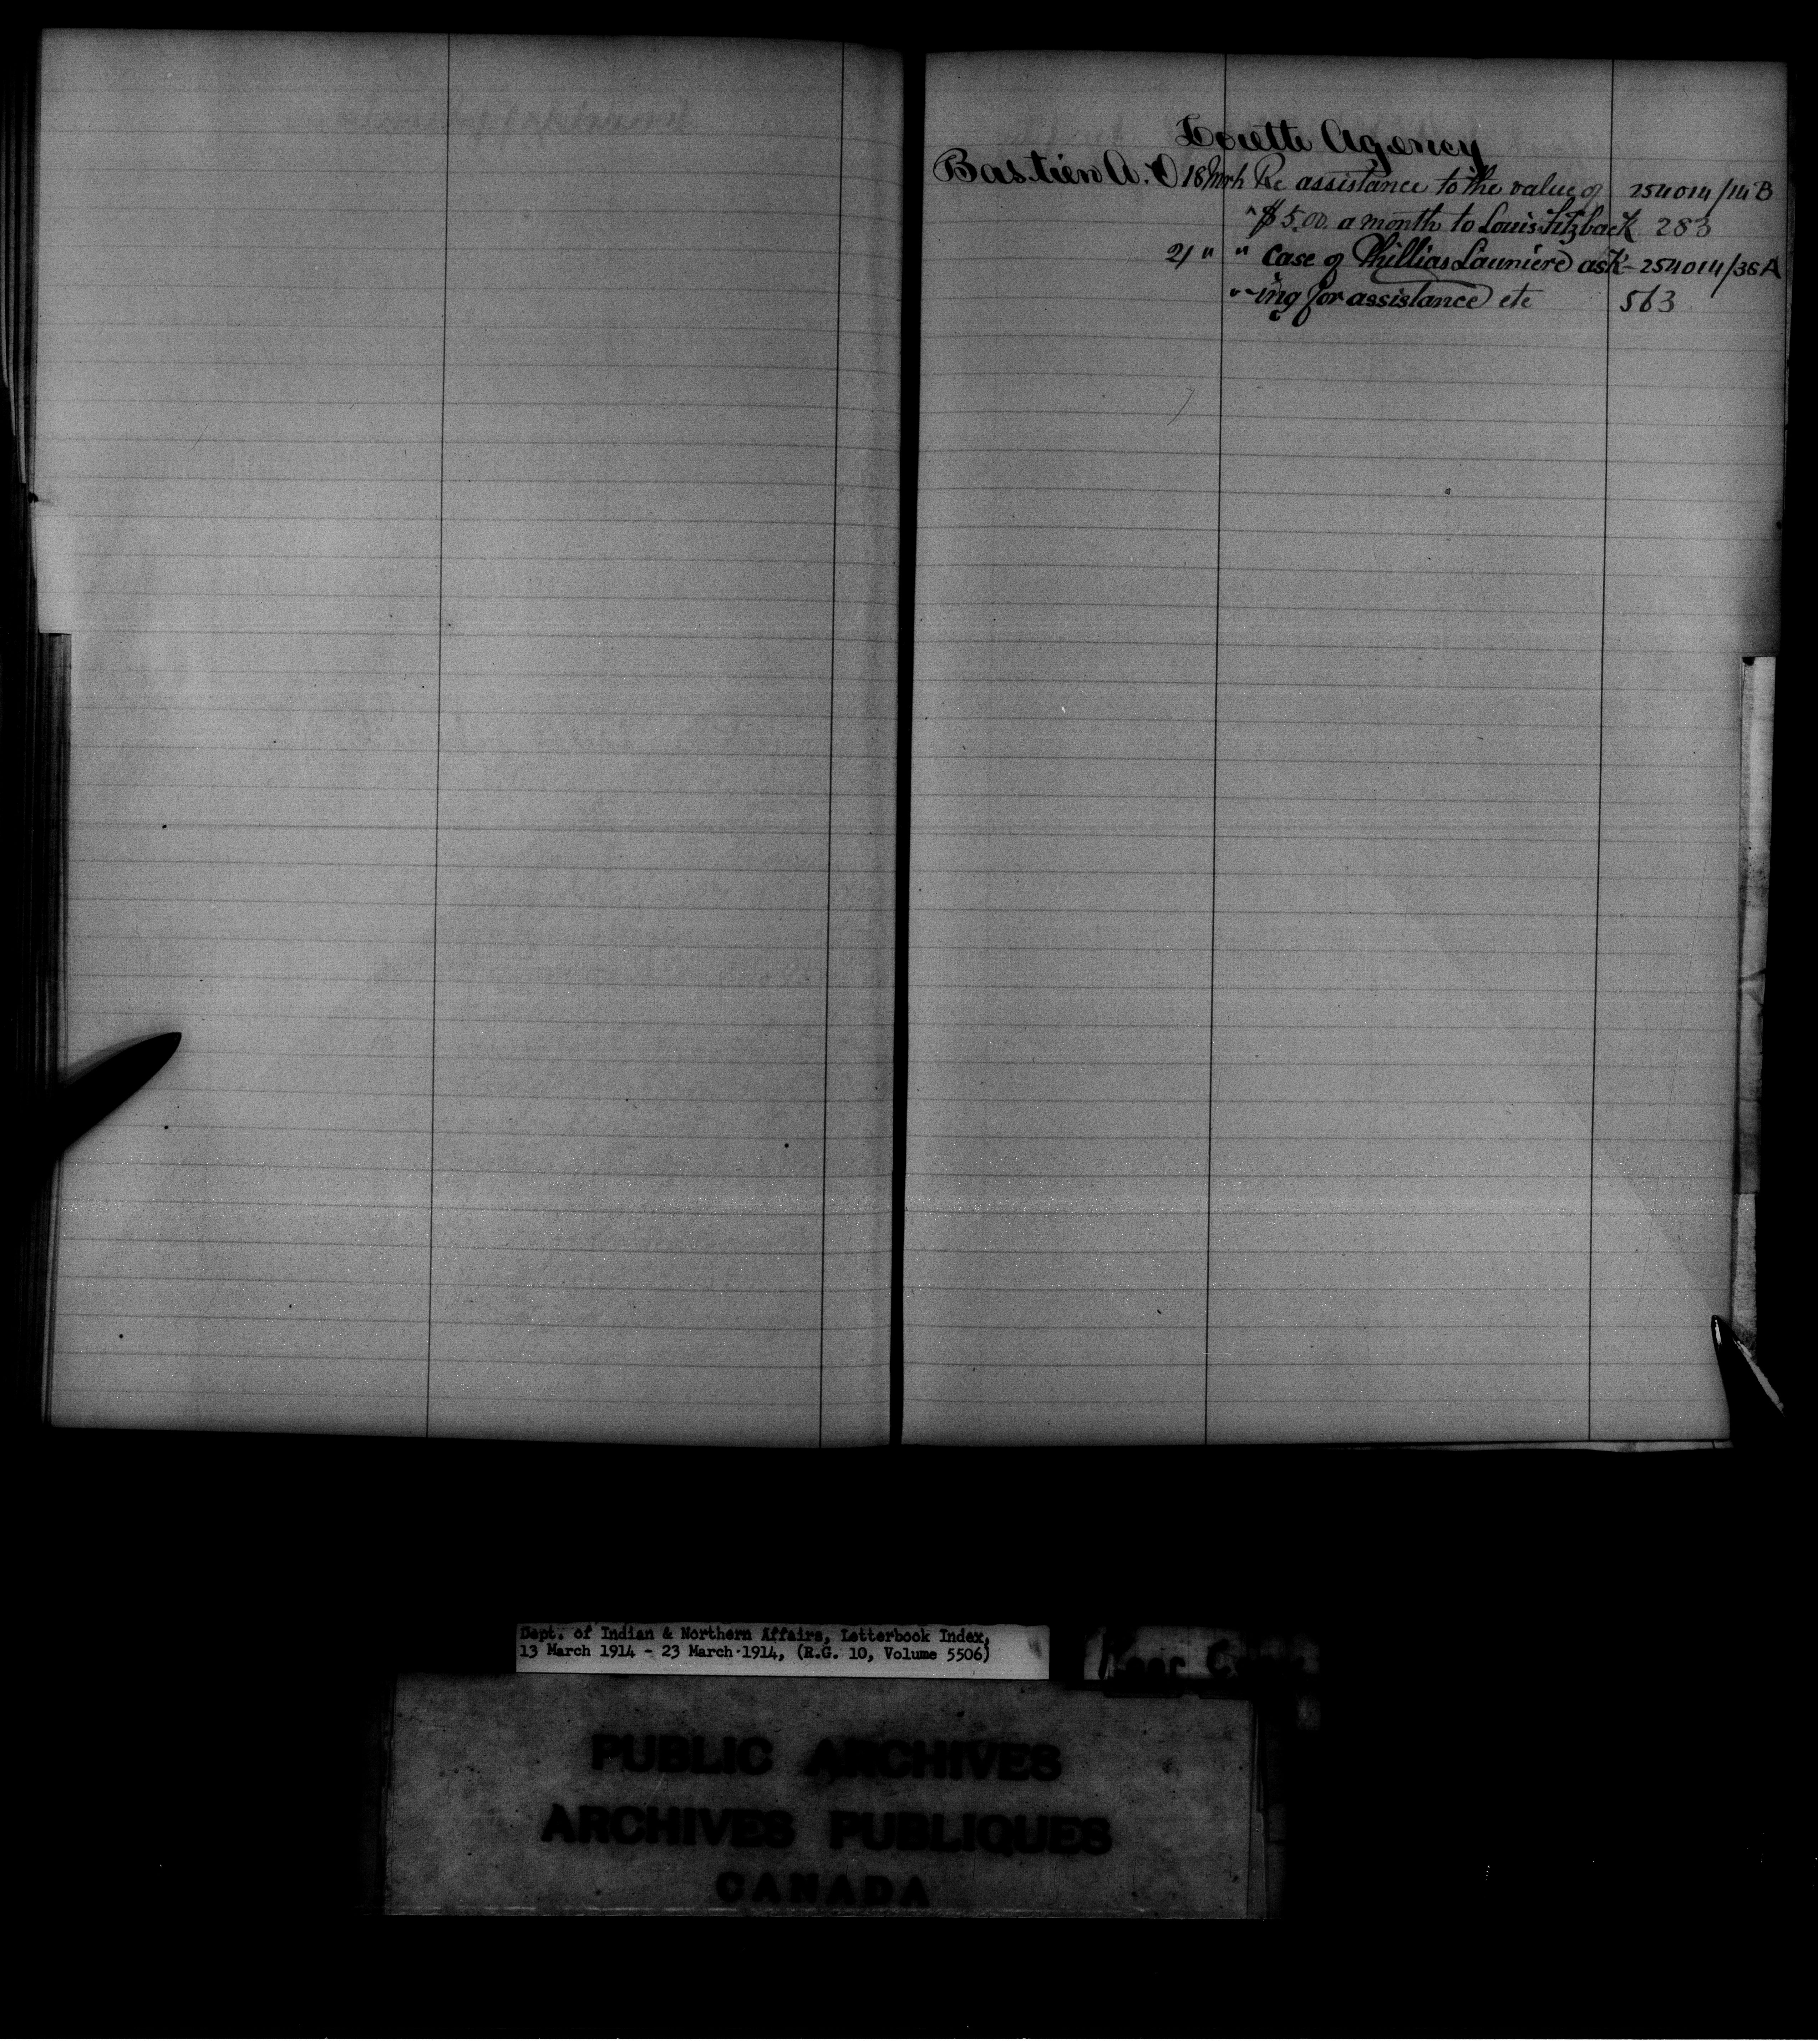 Lorette Agency
Bastien A. O 18 Mrh Re assistance to the value of 254014/14B
$5.00 a month to Louis Fitzback 283
21 " " case of Phillias Launiere ask- 254014/38A
-ing for assistance etc 563
Dept. of Indian & Northern Affairs, Letterbook Index,
13 March 1914 - 23 March 1914, (R.G. 10, Volume 5506)
PUBLIC ARCHIVES
ARCHIVES PUBLIQUES
CANADA